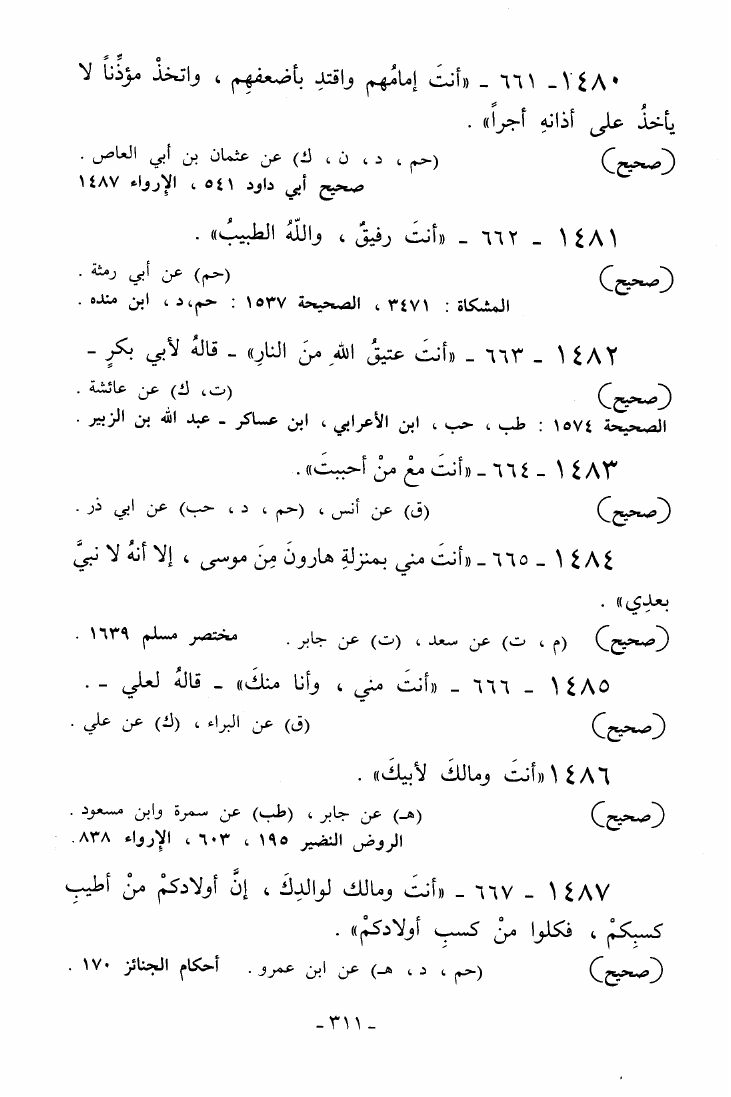 ١٤٨٠ـ ٦٦١ ـ «أنتَ إمامُهم واقتدِ بأضعفهِم ، واتخذْ مؤذِّناً لا
يأخذُ على أذانهِ أجراً» .
(صحيح) (حم ، د ، ن ، ك) عن عثمان بن أبي العاص .
صحيح أبي داود ٥٤١ ، الإرواء ١٤٨٧
١٤٨١ ـ ٦٦٢ ـ «أنتَ رفيقٌ ، واللّهُ الطبيبُ» .
(صحيح) (حم) عن أبي رمثة .
المشكاة : ٣٤٧١ ، الصحيحة ١٥٣٧ : حم،د ، ابن منده .
١٤٨٢ ـ ٦٦٣ ـ «أنتَ عتيقُ اللهِ منَ النارِ» ـ قالهُ لأبي بكرٍ ـ
(صحيح) (ت، ك) عن عائشة .
الصحيحة ١٥٧٤ : طب ، حب ، ابن الأعرابي ، ابن عساكر ـ عبد الله بن الزبير .
١٤٨٣ ـ ٦٦٤ ـ «أنتَ معْ منْ أحببتَ» .
(صحيح) (ق) عن أنس ، (حم ، د ، حب) عن ابي ذر .
١٤٨٤ ـ ٦٦٥ ـ «أنتَ مني بمنزلةِ هارونَ مِنَ موسى ، إلا أنهُ لا نبيَّ
بعدِي» .
(صحيح) (م ، ت) عن سعد ، (ت) عن جابر . مختصر مسلم ١٦٣٩ .
١٤٨٥ ـ ٦٦٦ ـ «أنتَ مني ، وأنا منكَ» ـ قالهُ لعلي ـ .
(صحيح) (ق) عن البراء ، (ك) عن علي .
١٤٨٦ «أنتَ ومالكَ لأبيكَ» .
(صحيح) (هـ) عن جابر ، (طب) عن سمرة وابن مسعود .
الروض النضير ١٩٥ ، ٦٠٣ ، الإرواء ٨٣٨ .
١٤٨٧ ـ ٦٦٧ ـ «أنتَ ومالك لوالدِكَ ، إنَّ أولادكمْ منْ أطيبِ
كسبِكمْ ، فكلوا منْ كسبِ أولادكمْ» .
(صحيح) (حم ، د ، هـ) عن ابن عمرو . أحكام الجنائز ١٧٠ .
ـ ٣١١ ـ